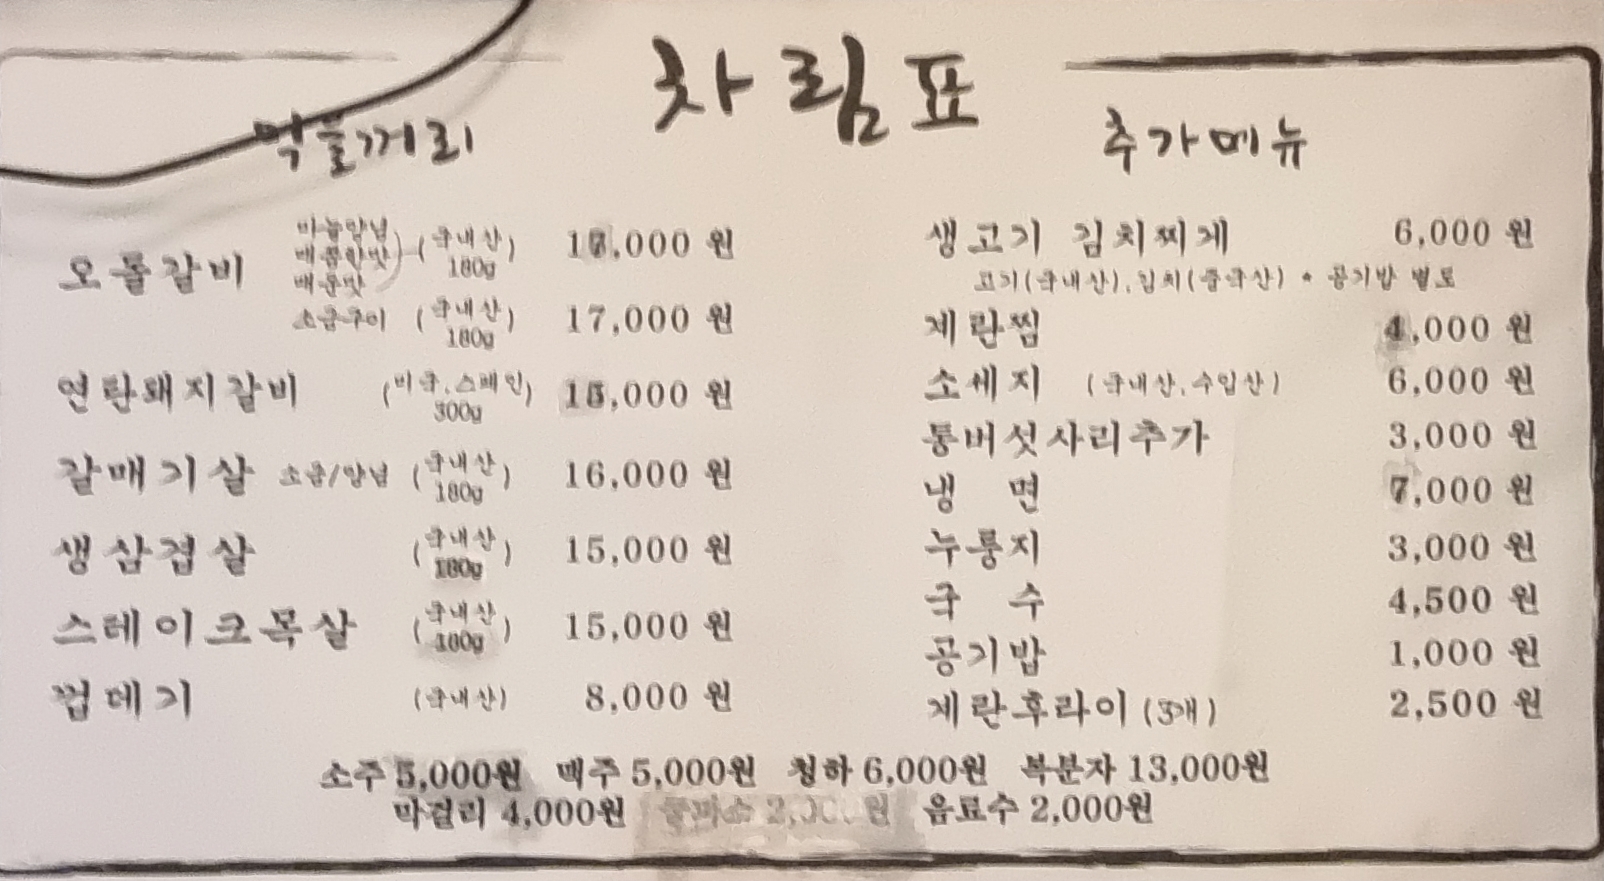 차림표
먹을꺼리
오돌갈비 마늘양념 (국내산) 원
매콤한맛 180g
매운맛
소금구이 (국내산) 17,000 원
180g
연탄돼지갈비 (미국,스페인) 원
300g
갈매기살 소금/양념 (국내산) 16,000 원
180g
생삼겹살 (국내산) 15,000 원
180g
스테이크목살 (국내산) 15,000 원
180g
껍데기 (국내산) 8,000 원
추가메뉴
생고기 김치찌게 6,000 원
고기(국내산),김치(중국산) * 공기밥 별도
계란찜 4,000 원
소세지 (국내산,수입산) 6,000 원
통버섯사리추가 3,000 원
냉 면 7,000 원
누룽지 3,000 원
국 수 4,500 원
공기밥 1,000 원
계란후라이 (3개) 2,500 원
소주 5,000원 맥주 5,000원 청하 6,000원 복분자 13,000원
막걸리 4,000원 음료수 2,000원